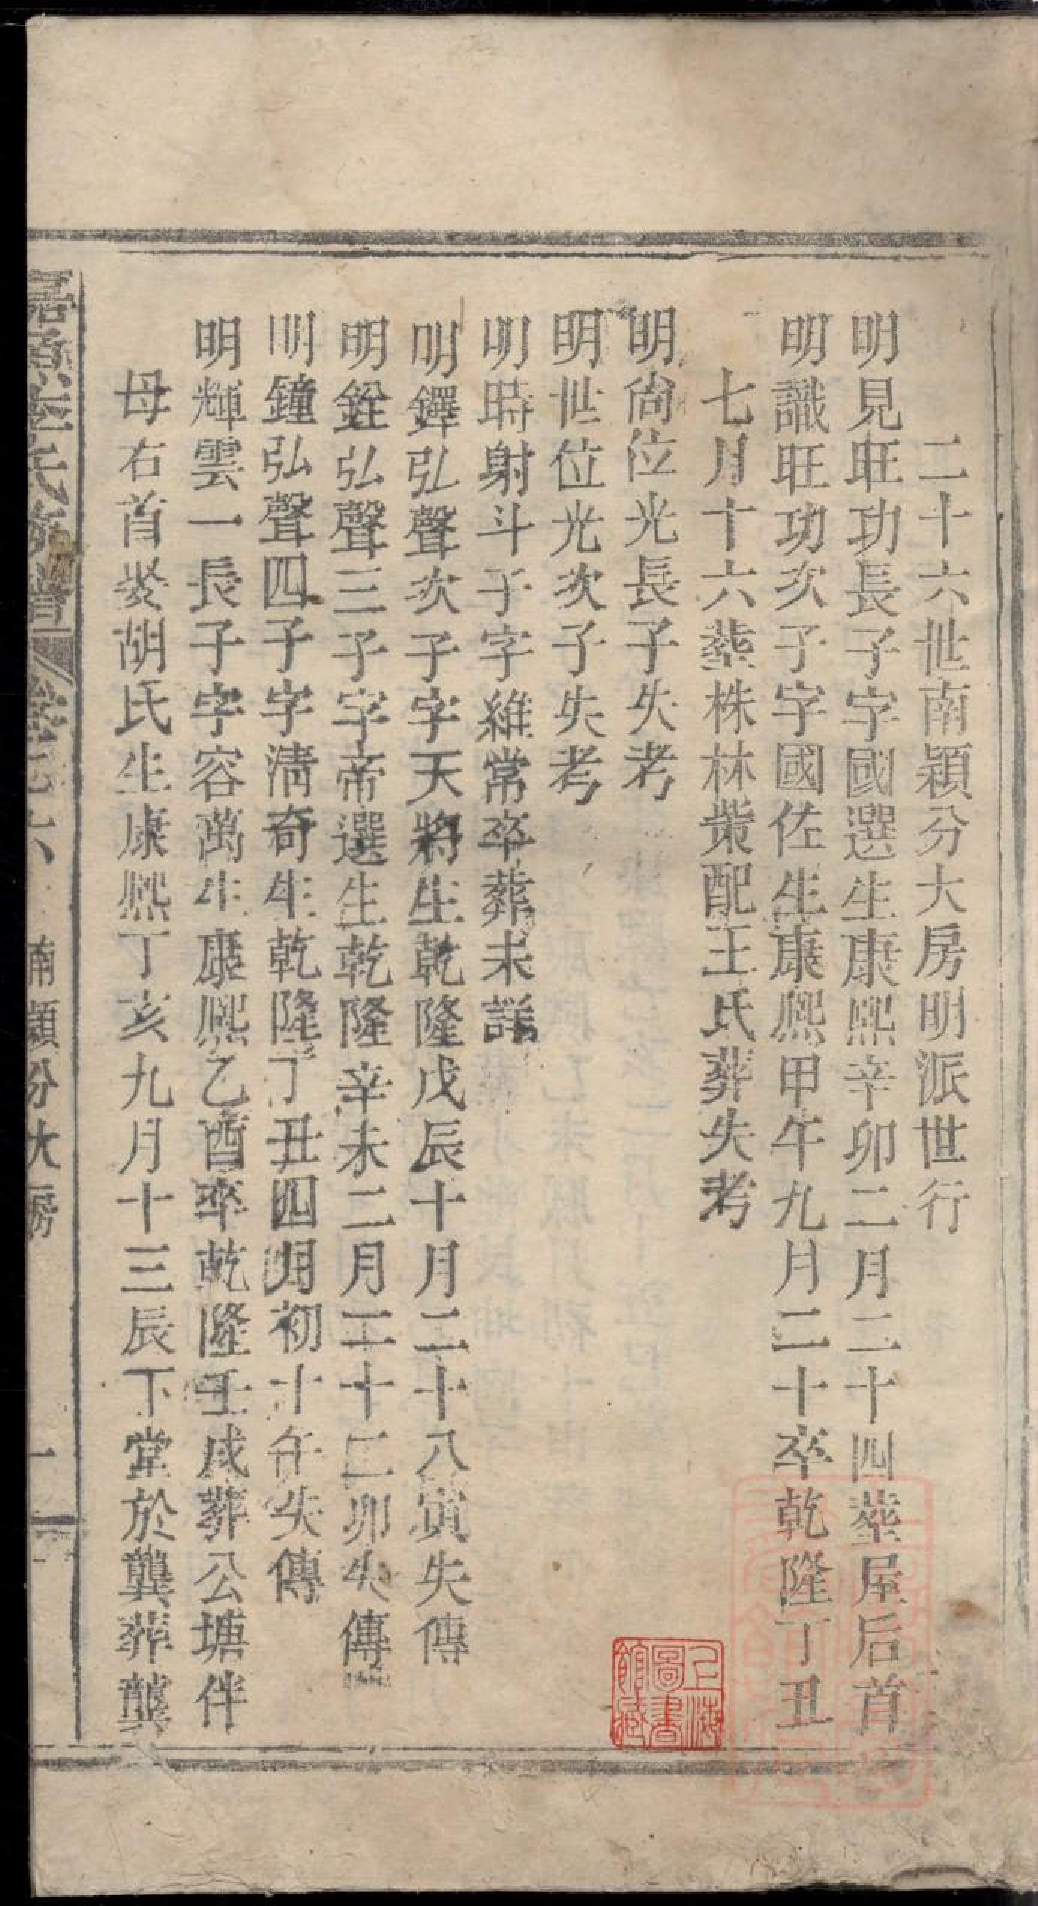 二十六世南穎分大房明派世行
明見旺功長子字國選生康熙辛卯二月二十四塟屋后首
明識旺功次子字國佐生康熙甲午九月二十卒乾隆丁丑
七月十六塟株林紫配王氏葬失考
明尙位光長子失考
明世位光次子失考
明時射斗子字維常卒葬未詳
明鐸弘聲次子字天將生乾隆戊辰十月二十八寅失傳
明銓弘聲三子字帝選生乾隆辛未二月二十二卯失傳
明鐘弘聲四子字清奇生乾隆丁丑四月初十午失傳
明輝雲一長子字容萬生康熙乙酉卒乾隆壬戌葬公塘伴
母右首娶胡氏生康熙丁亥九月十三辰下堂於龔葬龔
氏 譜 卷之六 南穎分大房 一
上海圖書館藏